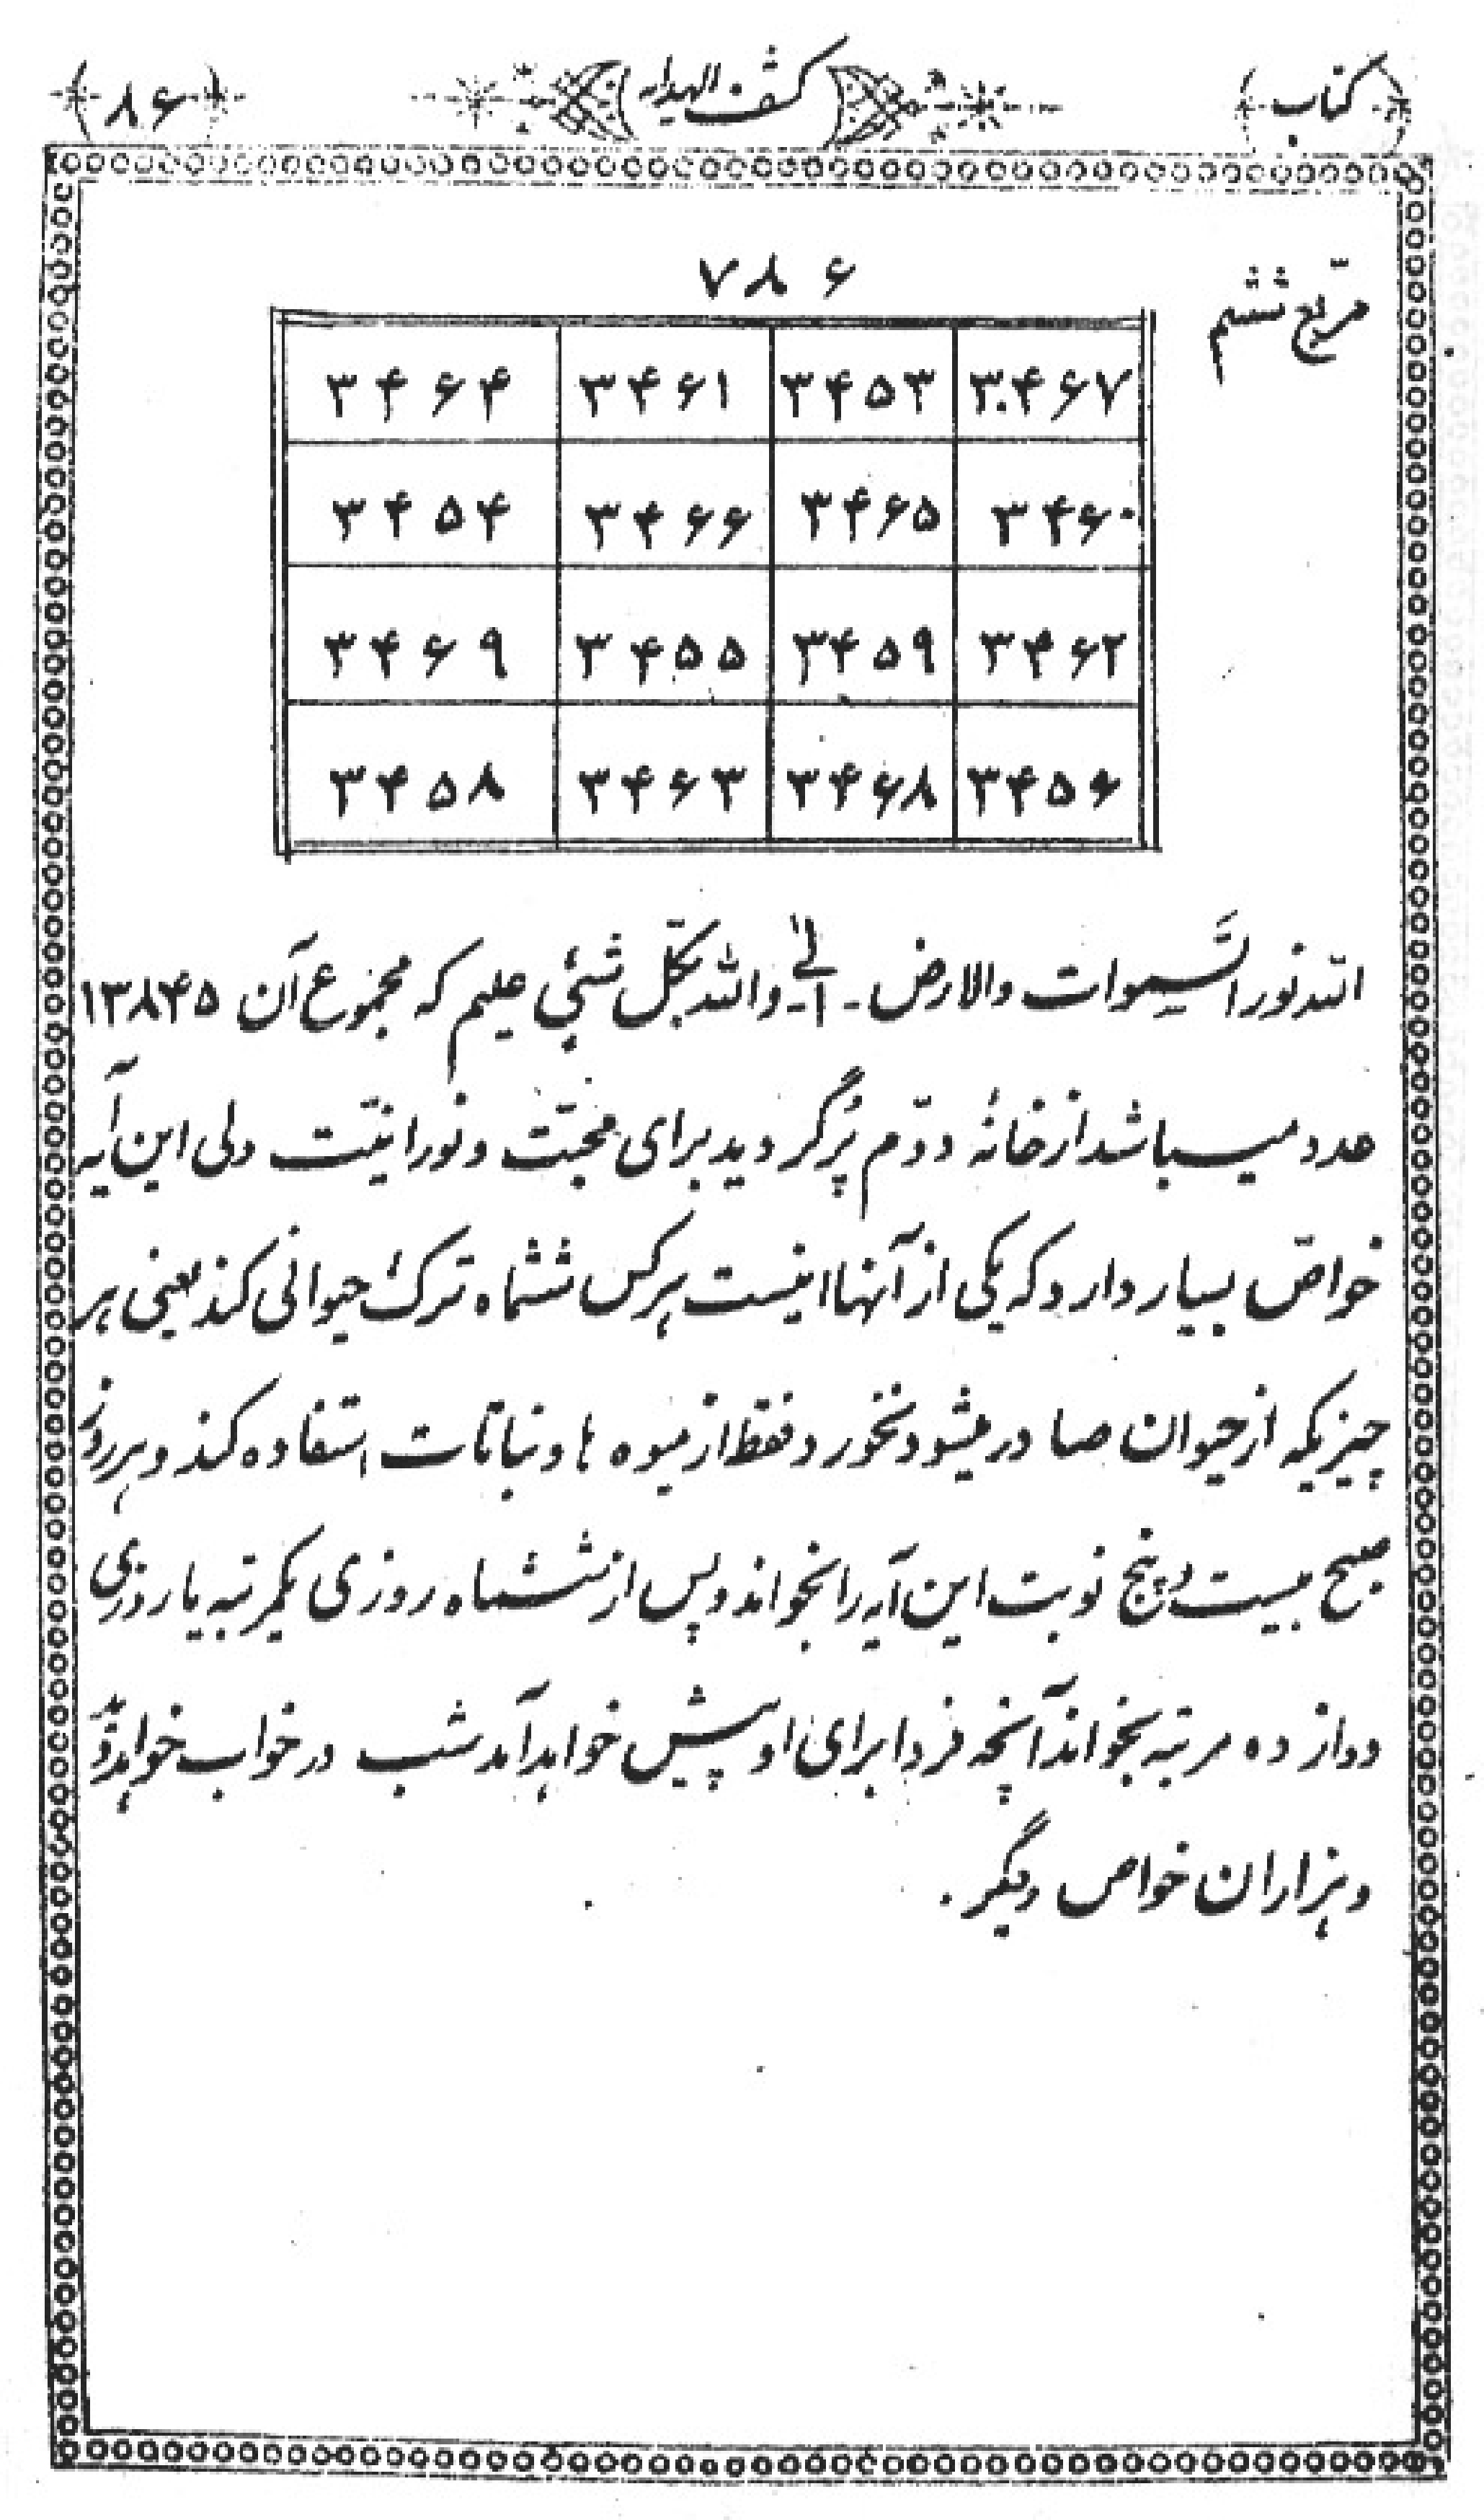 کتاب کشف الهدایه ۸۶
مربّع ششم
۷۸۶
۳۴۶۴ ۳۴۶۱ ۳۴۵۳ ۳۴۶۷
۳۴۵۴ ۳۴۶۶ ۳۴۶۵ ۳۴۶۰
۳۴۶۹ ۳۴۵۵ ۳۴۵۹ ۳۴۶۲
۳۴۵۸ ۳۴۶۳ ۳۴۶۸ ۳۴۵۶
الله نور السَّموات والارض - الی - والله بکلّ شئی علیم که مجموع آن ۱۳۸۴۵
عدد میباشد از خانهٔ دوّم پُر گردید برای محبّت و نورانیّت ولی این آیه
خواصّ بسیار دارد که یکی از آنها اینست هرکس ششماه ترک حیوانی کند یعنی هر
چیزیکه از حیوان صادر میشود نخورد و فقط از میوه ها و نباتات استفاده کند و هر روز
صبح بیست و پنج نوبت این آیه را بخواند و پس از ششماه روزی یکمرتبه یا روزی
دوازده مرتبه بخواند آنچه فردا برای او پیش خواهد آمد شب در خواب خواهد دید
و هزاران خواص دیگر .